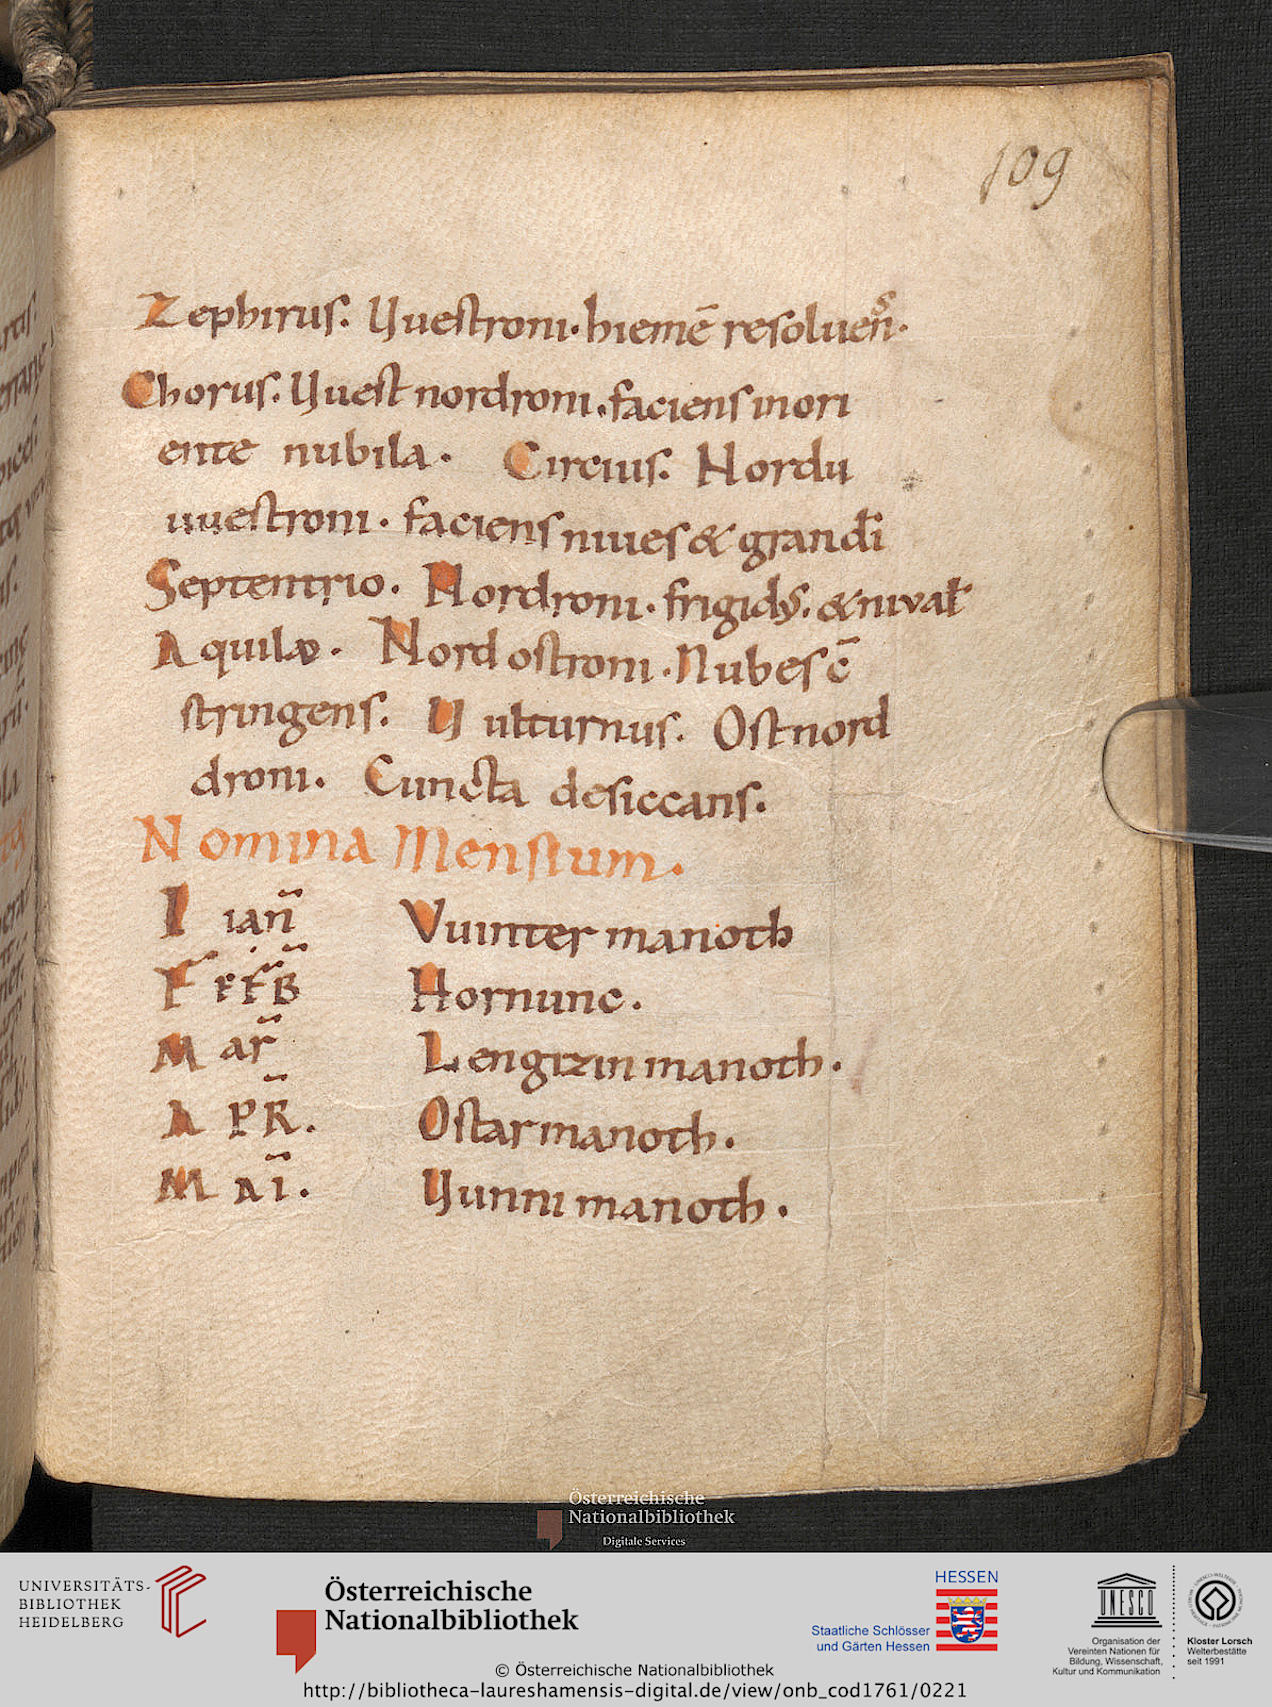 109
Zephirus. Uuestroni. hiemē resoluen̄s.
Chorus. Uuest nordroni. faciens in ori
ente nubila. Circius. Nordu
uuestroni. faciens niues & grandi
Septentrio. Nordroni. frigidus. & nival
Aquilo. Nord ostroni. Nubes c̄
stringens. Uulturnus. Ostnord
droni. Cuncta desiccans.
Nomina Mensium.
I ian̄ Vuinter manoth
F EF̄B Hornunc.
M ar̄ Lengizin manoth.
A PR̄. Ostarmanoth.
M AĪ. Uunni manoth.
Österreichische
Nationalbibliothek
Digitale Services
UNIVERSITÄTS-
BIBLIOTHEK
HEIDELBERG
Österreichische
Nationalbibliothek
HESSEN
Staatliche Schlösser
und Gärten Hessen
UNESCO
Organisation der
Vereinten Nationen für
Bildung, Wissenschaft,
Kultur und Kommunikation
Kloster Lorsch
Welterbestätte
seit 1991
© Österreichische Nationalbibliothek
http://bibliotheca-laureshamensis-digital.de/view/onb_cod1761/0221